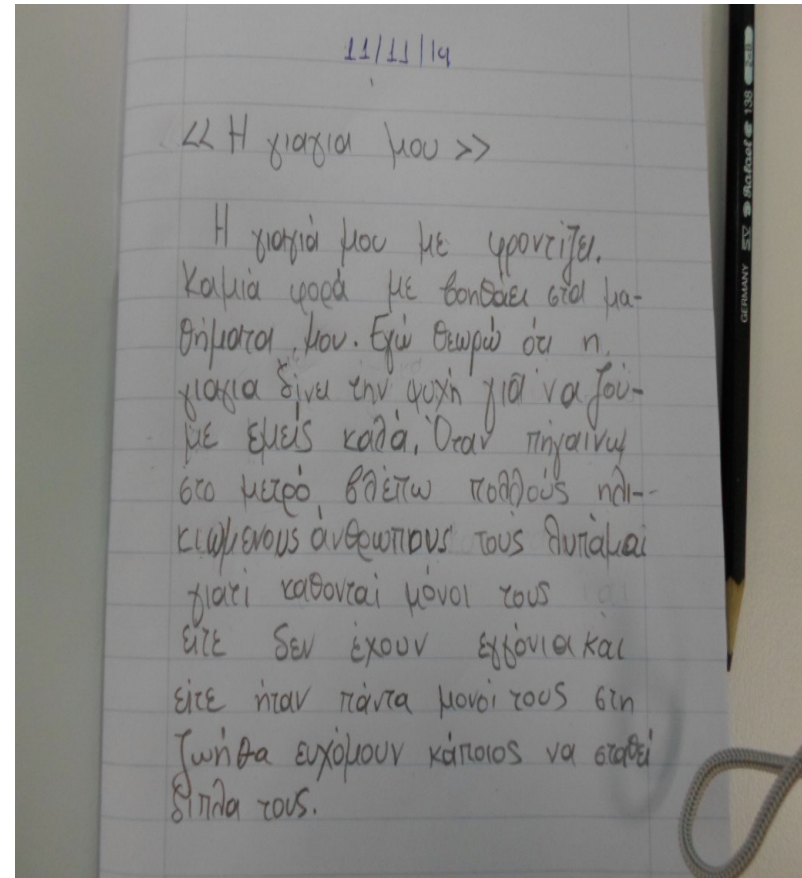 11/11/14
<< Η γιαγια μου >>
Η γιαγιά μου με φροντίζει.
Καμιά φορά με βοηθάει στα μα-
θήματα μου. Εγώ θεωρώ ότι η
γιαγια δίνει την ψυχή για να ζού-
με εμείς καλά. Όταν πήγαινω
στο μετρό βλέπω πολλούς ηλι-
κιωμενους άνθρωπους τους λυπάμαι
γιατί καθονται μόνοι τους
είτε δεν έχουν εγγόνια και
είτε ήταν πάντα μονοί τους στη
ζωή θα ευχόμουν κάποιος να σταθεί
διπλα τους.
GERMANY SV Rafael 138 2=B